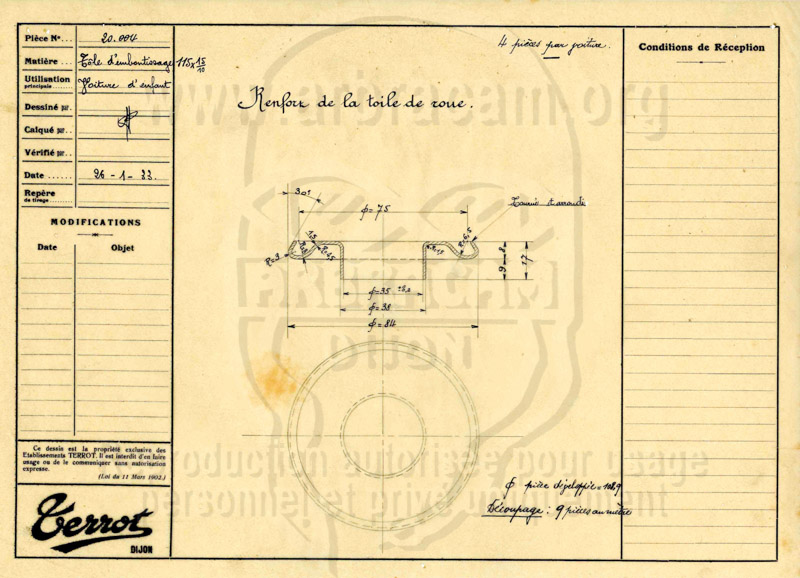 Pièce Nº... 20.004
Matière... Tôle d'emboutissage 115x15/10
Utilisation
principale..... Voiture d'enfant
Dessiné par.
Calqué par..
Vérifié par..
Date ...... 26-1-33.
Repère
de tirage......
MODIFICATIONS
Date Objet
Ce dessin est la propriété exclusive des
Etablissements TERROT. Il est interdit d'en faire
usage ou de le communiquer sans autorisation
expresse.
(Loi du 11 Mars 1902.)
Terrot
DIJON
4 pièces par voiture.
Renfort de la toile de roue.
30°
φ=75
Tourné et arrondi
R=3
1,5
R=6,5
8
9
17
φ=35
φ=38
φ=84
φ pièce développée=108,9
Découpage : 9 pièces au mètre
Conditions de Réception
www.arbracam.org
ARBRACAM
DIJON
reproduction autorisée pour usage
personnel et privé uniquement